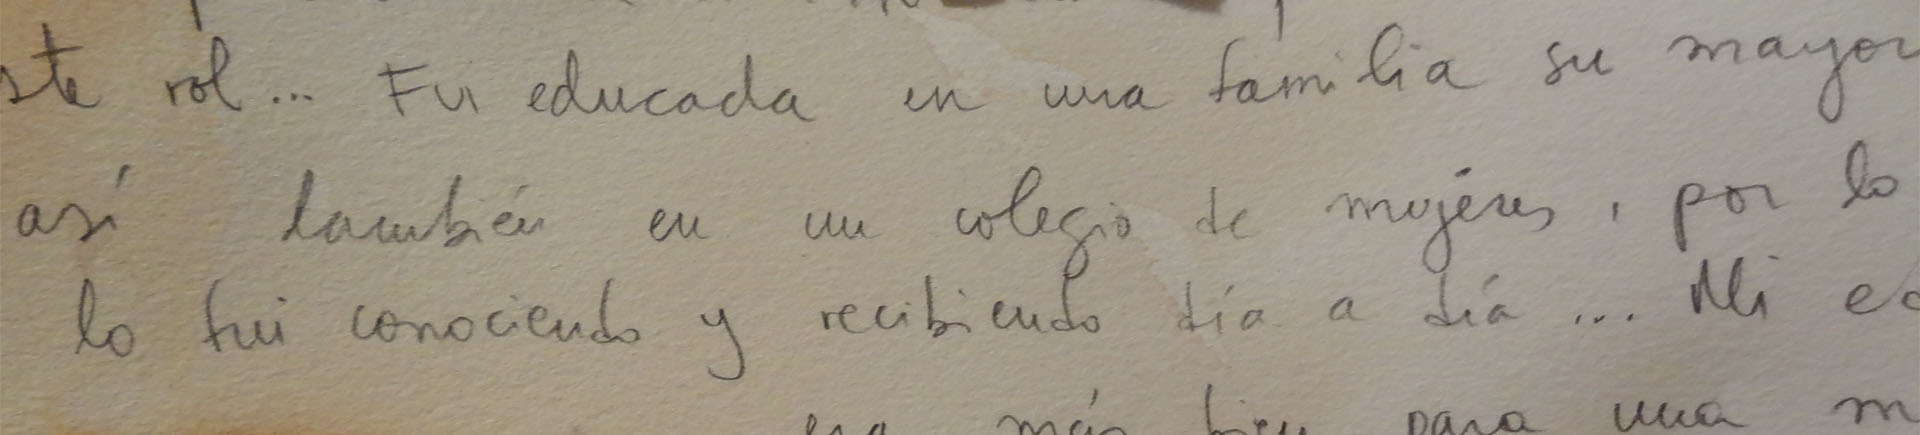 ste rol... Fui educada en una familia su mayor
así también en un colegio de mujeres, por lo
lo fui conociendo y recibiendo día a día... Mi ed
era más bien para una m